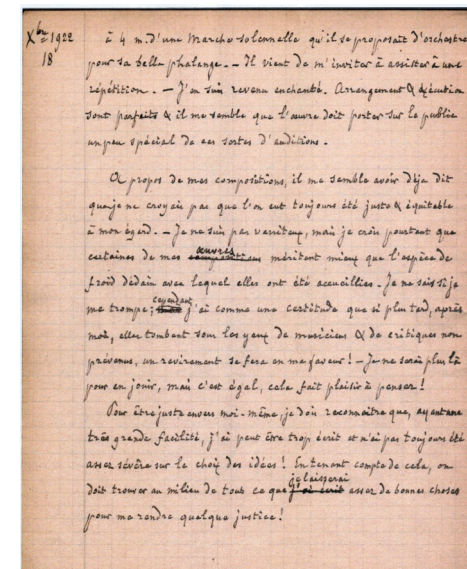 Xbre 1922
18
à 4 m. d'une Marche solennelle qu'il se proposait d'orchestrer
pour sa belle phalange. - Il vient de m'inviter à assister à une
répétition. - J'en suis revenu enchanté. Arrangement & exécution
sont parfaits & il me semble que l'œuvre doit porter sur le public
un peu spécial de ces sortes d'auditions.
A propos de mes compositions, il me semble avoir déja dit
que je ne croyais pas que l'on eut toujours été juste & équitable
à mon égard. - Je ne suis pas vaniteux, mais je crois pourtant que
certaines de mes compositions œuvres méritent mieux que l'espèce de
froid dédain avec lequel elles ont été accueillies. Je ne sais si je
me trompe; mais cependant j'ai comme une certitude que si plus tard, après
moi, elles tombent sous les yeux de musiciens & de critiques non
prévenus, un revirement se fera en ma faveur! - Je ne serai plus là
pour en jouir, mais c'est égal, cela fait plaisir à penser!
Pour être juste envers moi-même, je dois reconnaitre que, ayant une
très grande facilité, j'ai peut être trop écrit et n'ai pas toujours été
assez sévère sur le choix des idées! En tenant compte de cela, on
doit trouver au milieu de tout ce que j'ai écrit je laisserai assez de bonnes choses
pour me rendre quelque justice!